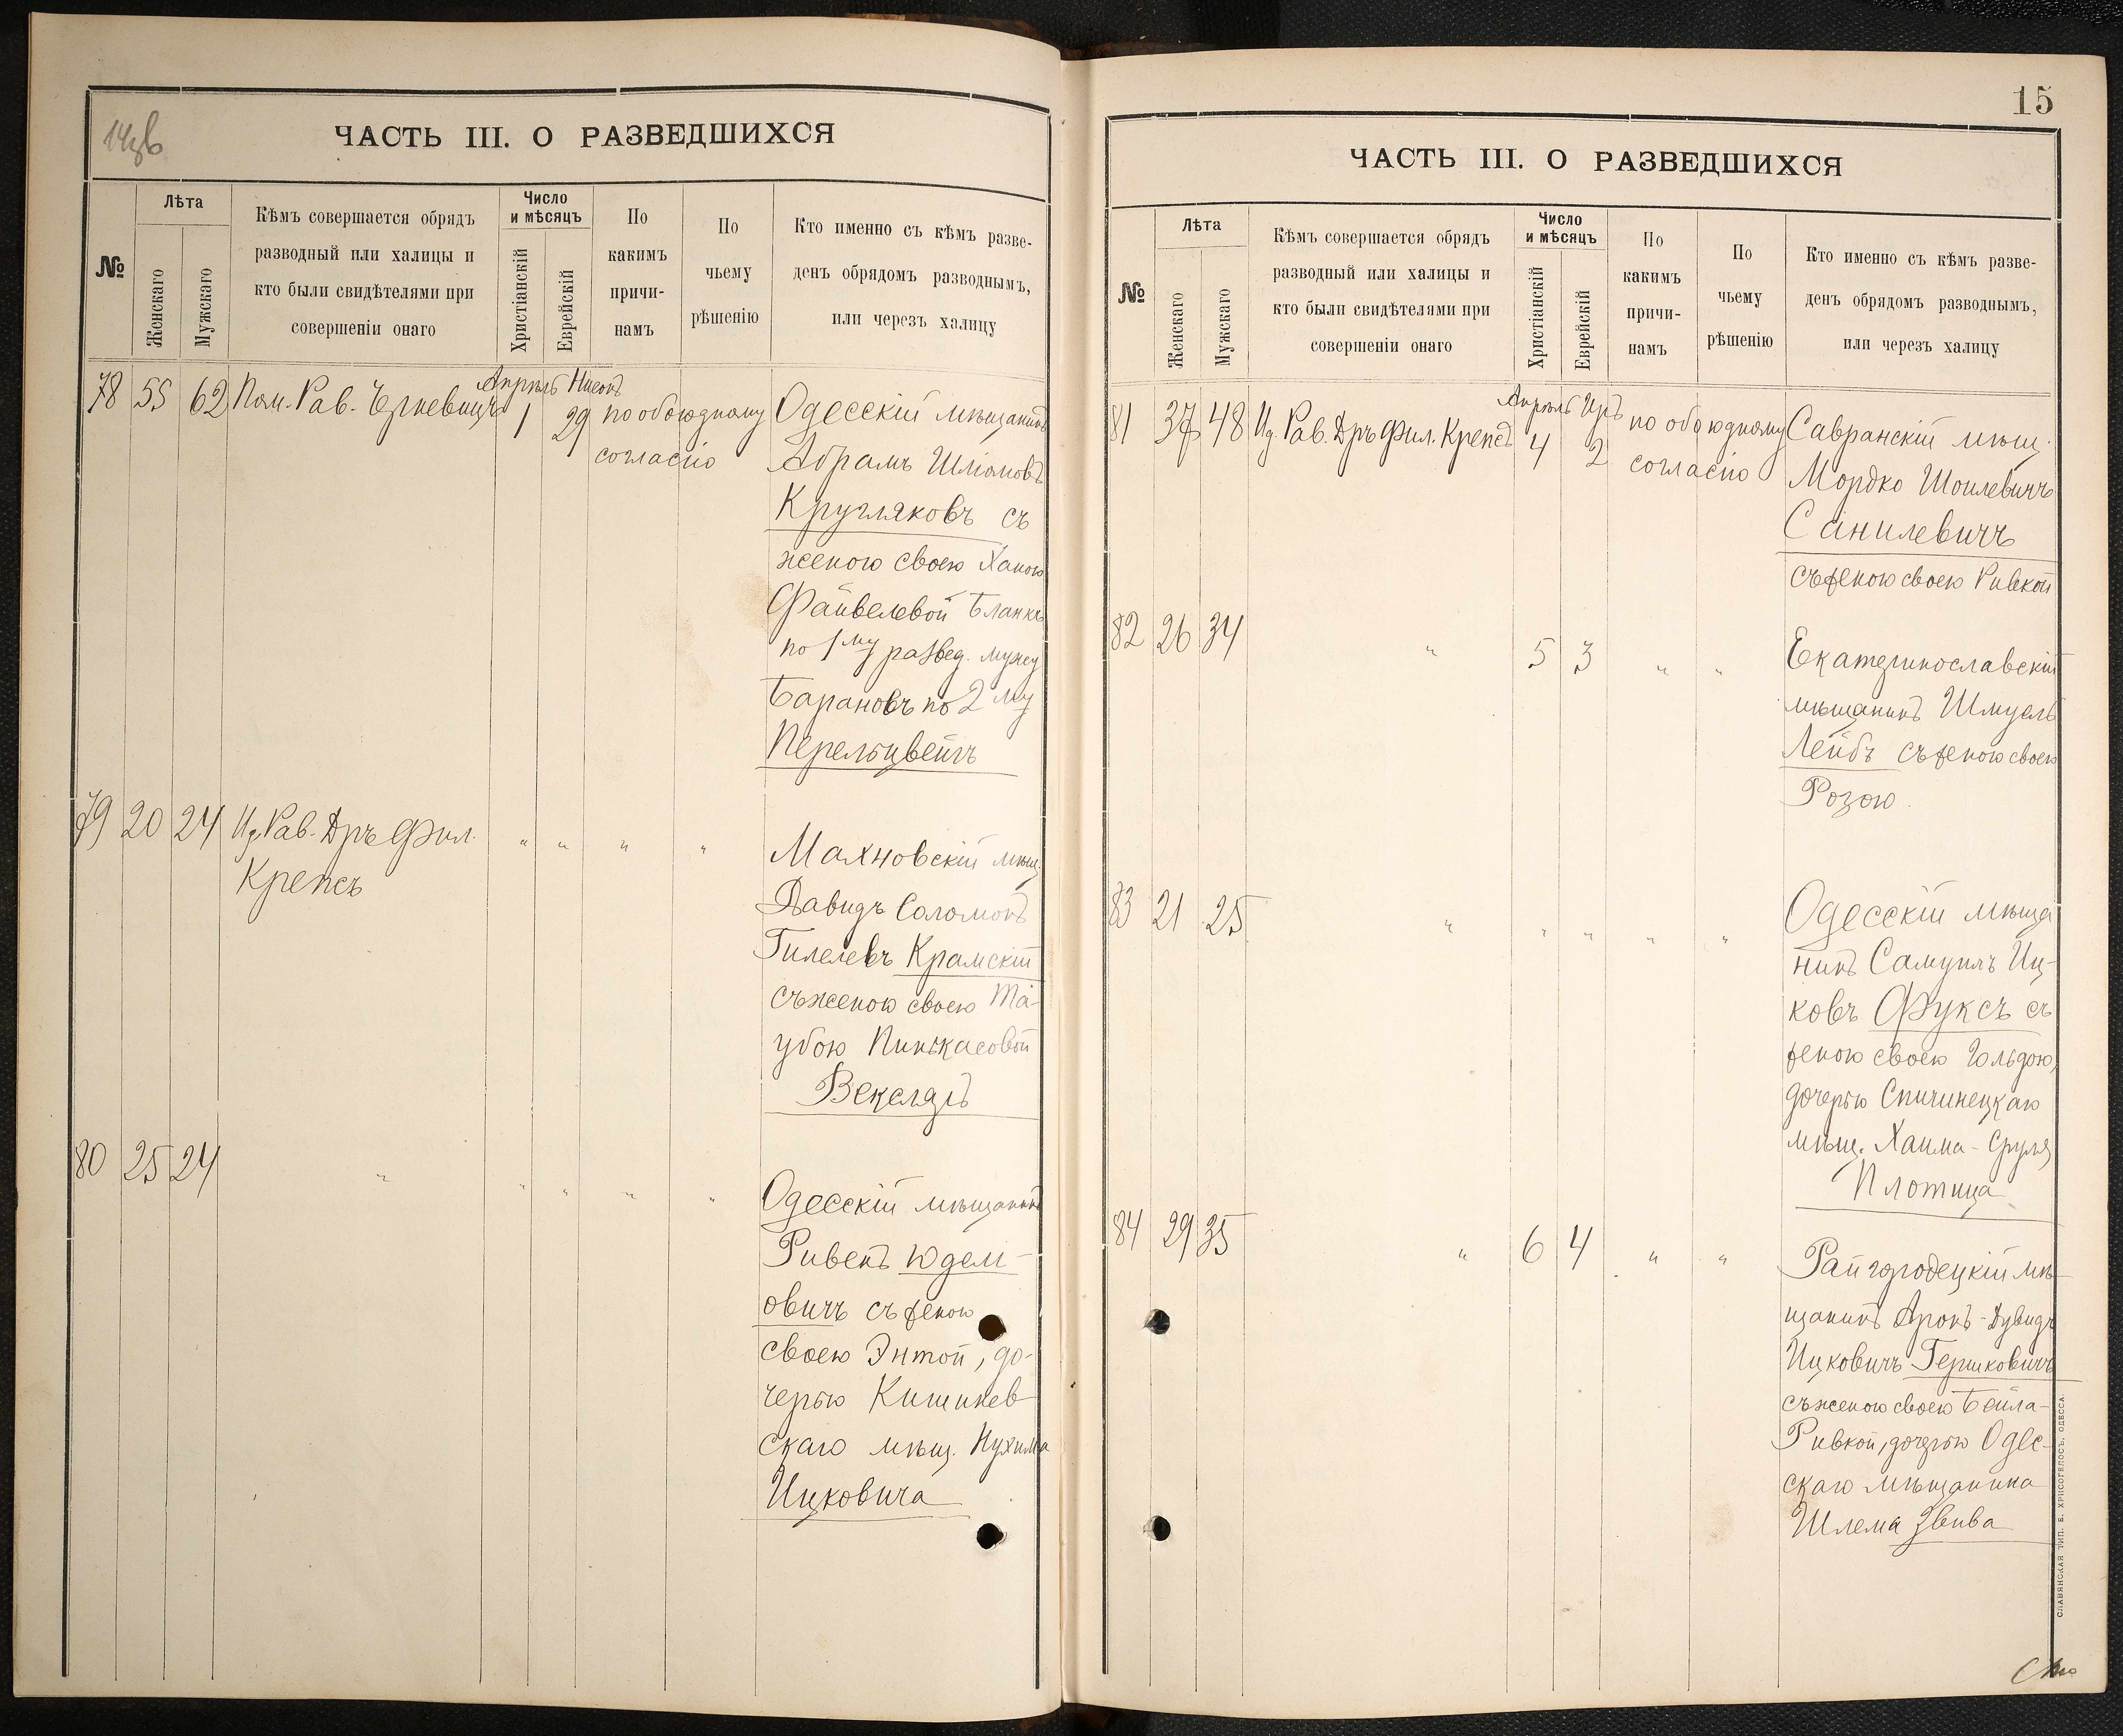 14 об
ЧАСТЬ III. О РАЗВЕДШИХСЯ
№
Лѣта
Женскаго
Мужскаго
Кѣмъ совершается обрядъ
разводный или халицы и
кто были свидѣтелями при
совершеніи онаго
Число
и мѣсяцъ
Христіанскій
Еврейскій
По
какимъ
причи-
намъ
По
чьему
рѣшенію
Кто именно съ кѣмъ разве-
денъ обрядомъ разводнымъ,
или черезъ халицу
Апрѣль Нисонъ
78 55 62 Пом. Рав. 1 29 по обоюдному Одесскій мѣщанинъ
согласію Абрамъ Шліомовъ
Кругляковъ съ
женою своею Ханою
Файвелевой Бланкъ
по 1му развед. мужу
Барановъ по 2му
Перельцвейгъ
79 20 24 Ид. Рав. Дръ Фил. " " " " Махновскій мѣщ.
Крепсъ
Давидъ Соломонъ
Гилелевъ Крамскій
съ женою своею Та-
убою Пинькасовой
Векслеръ
80 25 24 " " " " " Одесскій мѣщанинъ
Ривенъ Юдел-
овичъ съ женою
своею Энтой, до-
черью Кишинев-
скаго мѣщ. Нухима
Ицковича
15
ЧАСТЬ III. О РАЗВЕДШИХСЯ
№
Лѣта
Женскаго
Мужскаго
Кѣмъ совершается обрядъ
разводный или халицы и
кто были свидѣтелями при
совершеніи онаго
Число
и мѣсяцъ
Христіанскій
Еврейскій
По
какимъ
причи-
намъ
По
чьему
рѣшенію
Кто именно съ кѣмъ разве-
денъ обрядомъ разводнымъ,
или черезъ халицу
Апрѣль Иръ
81 37 48 Ид. Рав. Дръ Фил. Крепсъ 4 2 по обоюдному Савранскій мѣщ.
согласію Мордко Шоилевичъ
Санилевичъ
съ женою своею Ривкой
82 26 34 " 5 3 " " Екатеринославскій
мѣщанинъ Шмуель
Лейбъ съ женою своею
Розою.
83 21 25 " " " " " Одесскій мѣща
нинъ Самуилъ Иц-
ковъ Фуксъ съ
женою своею Гольдою,
дочерью Спичинецкаго
мѣщ. Хаима-Сруля
Плотица
84 29 35 " 6 4 " " Райгородецкій мѣ-
щанинъ Аронъ-Дувидъ
Ицковичъ Гершковичъ
съ женою своею Бейла-
Ривкой, дочерью Одес-
скаго мѣщанина
Шлема Звива
СЛАВЯНСКАЯ ТИП. Е. ХРИСОГЕЛОСЪ, ОДЕССА.